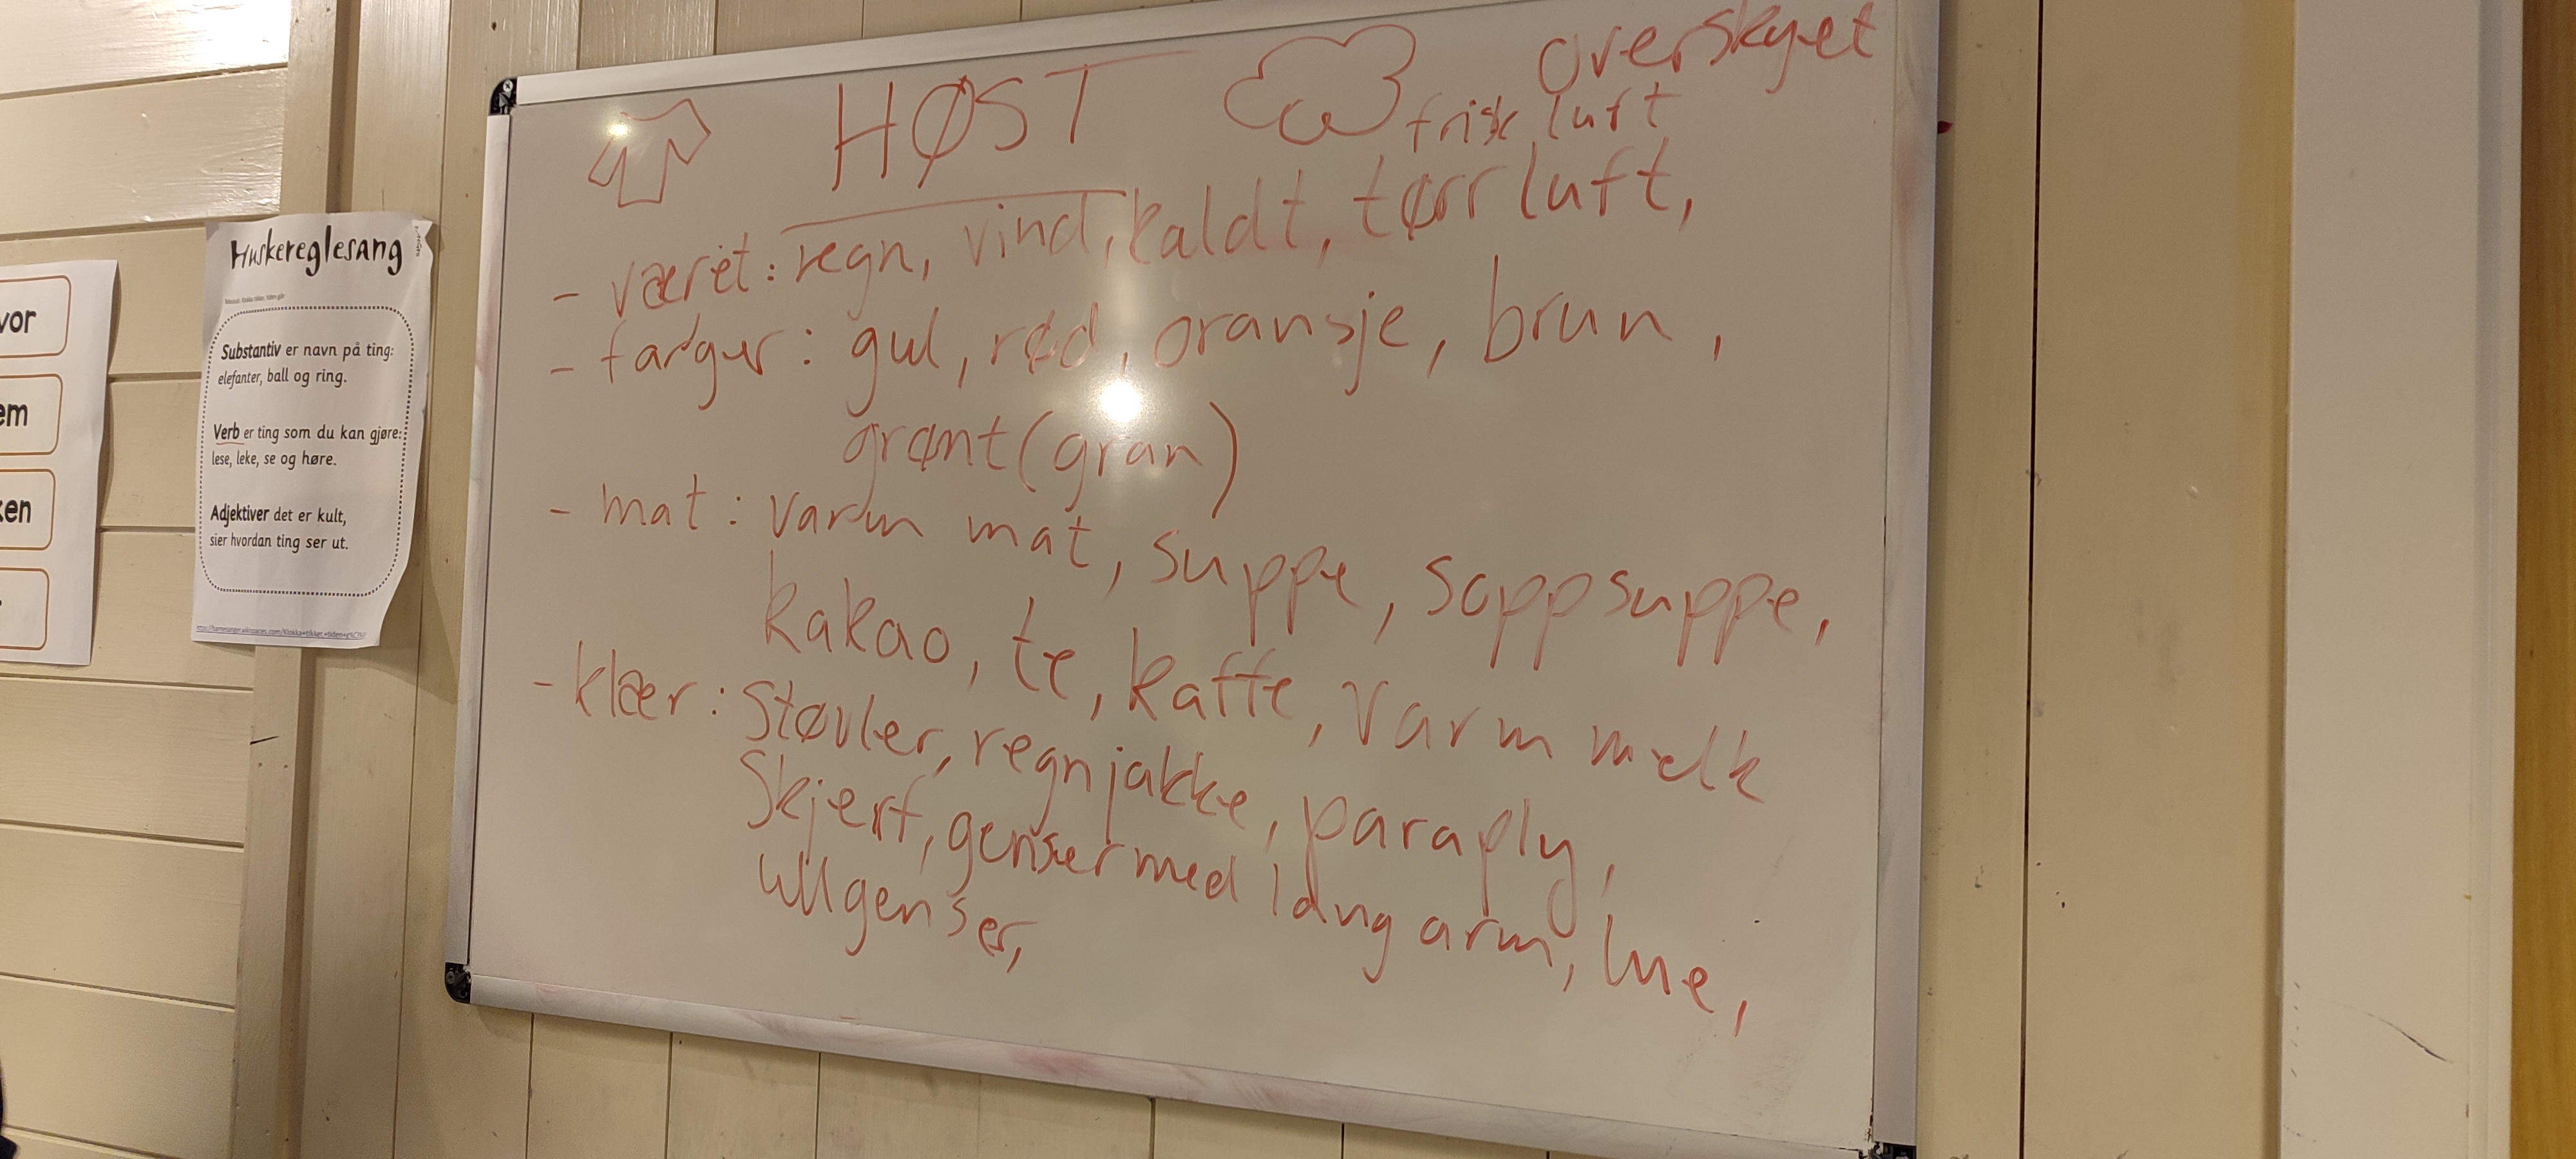 vor
em
ken
Huskereglesang
Substantiv er navn på ting:
elefanter, ball og ring.
Verb er ting som du kan gjøre:
lese, leke, se og høre.
Adjektiver det er kult,
sier hvordan ting ser ut.
overskyet
HØST
frisk luft
- været: regn, vind, kaldt, tørr luft,
- farger: gul, rød, oransje, brun,
grønt (gran)
- mat: varm mat, suppe, soppsuppe,
kakao, te, kaffe, varm melk
- klær: støvler, regnjakke, paraply,
Skjerf, genser med lang arm, lue,
ullgenser,